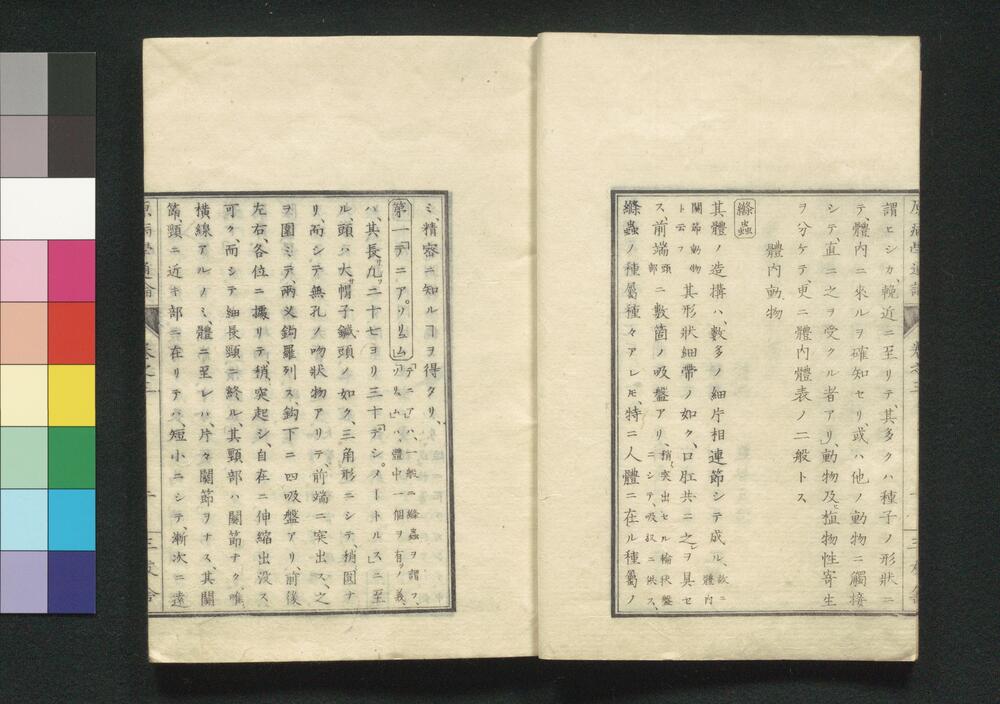 謂ヒシカ、輓近ニ至リテ、其多クハ種子ノ形狀ニ
テ、體內ニ來ルヲ確知セリ、或ハ他ノ動物ニ觸接
シテ直ニ之ヲ受クル者アリ、動物及ヒ植物性寄生
ヲ分ケテ、更ニ體內體表ノ二般トス
體內動物
絛蟲
其體ノ造構ハ、數多ノ細片相連節シテ成ル、故ニ體內
關節動物ト云フ 其形狀細帶ノ如ク、口肛共ニ之ヲ具セ
ス、前端頭部ニ數箇ノ吸盤アリ、稍突出セル輪狀盤ニシテ、吸収ニ供ス、
絛蟲ノ種屬種々アレㇳモ、特ニ人體ニ在ル種屬ノ
ミ、精密ニ知ルヿヲ得タリ、
第一「テニア。ソリㇺム」「テニア」ハ、一般ニ絛蟲ヲ謂フ、「ソリㇺム」ハ、體中一個ヲ有ツノ義、
ハ、其長九二十七ヨリ三十「デシ。メートルス」ニ至
ル、頭ハ大帽子鍼頭ノ如ク、三角形ニシテ、稍圓ナ
リ、而シテ無孔ノ吻狀物アリテ、前端ニ突出ス、之
ヲ圍ミテ、兩乂鈎羅列ス、鈎下ニ四吸盤アリ、前後
左右、各位ニ據リテ稍突起シ、自在ニ伸縮出沒ス
可ク而シテ細長頸ニ終ル、其頸部ハ關節ナク、唯
橫線アルノミ、體ニ至レハ、片々關節ヲナス、其關
節、頸ニ近キ部ニ在リテハ、短小ニシテ、漸次ニ遠